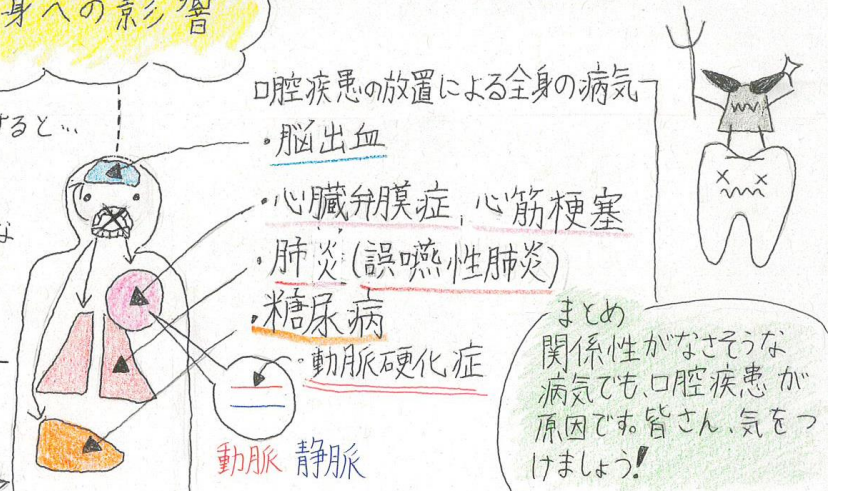 身への影響
すると…
口腔疾患の放置による全身の病気
・脳出血
・心臓弁膜症、心筋梗塞
・肺炎(誤嚥性肺炎)
・糖尿病
・動脈硬化症
動脈 静脈
まとめ
関係性がなさそうな
病気でも、口腔疾患が
原因です。皆さん、気をつ
けましょう!